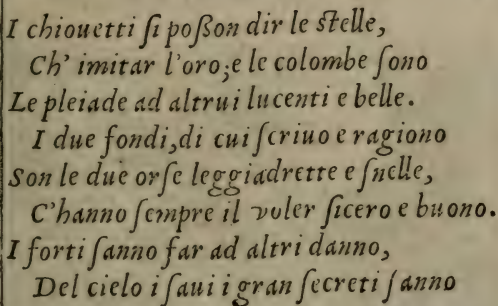 I chiouetti ſi poßon dir le ſtelle,
Ch' imitar l'oro;e le colombe ſono
Le pleiade ad altrui lucenti e belle.
I due fondi,di cui ſcriuo e ragiono
Son le due orſe leggiadrette e ſnelle,
C'hanno ſempre il voler ſicero e buono.
I forti ſanno far ad altri danno,
Del cielo i ſaui i gran ſecreti ſanno